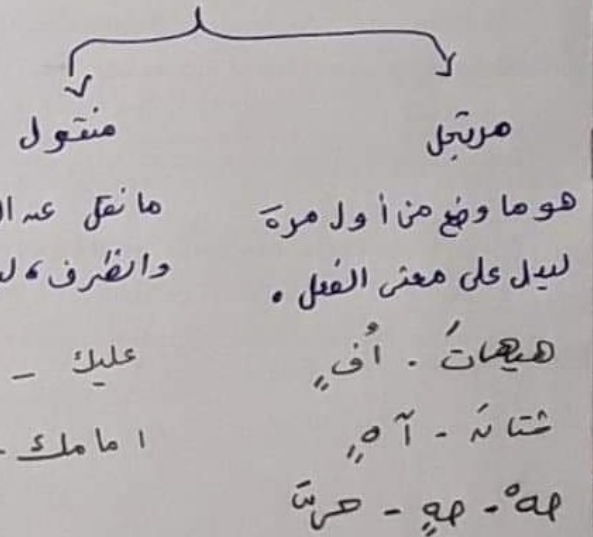 مرتجل
منقول
هو ما وضع من أول مرة
ليدل على معنى الفعل .
هيهاتَ . أُفٍ
شتانَ - آهٍ
صهْ - صهٍ -
ما نقل عن
والظرف ،
عليك -
امامك -